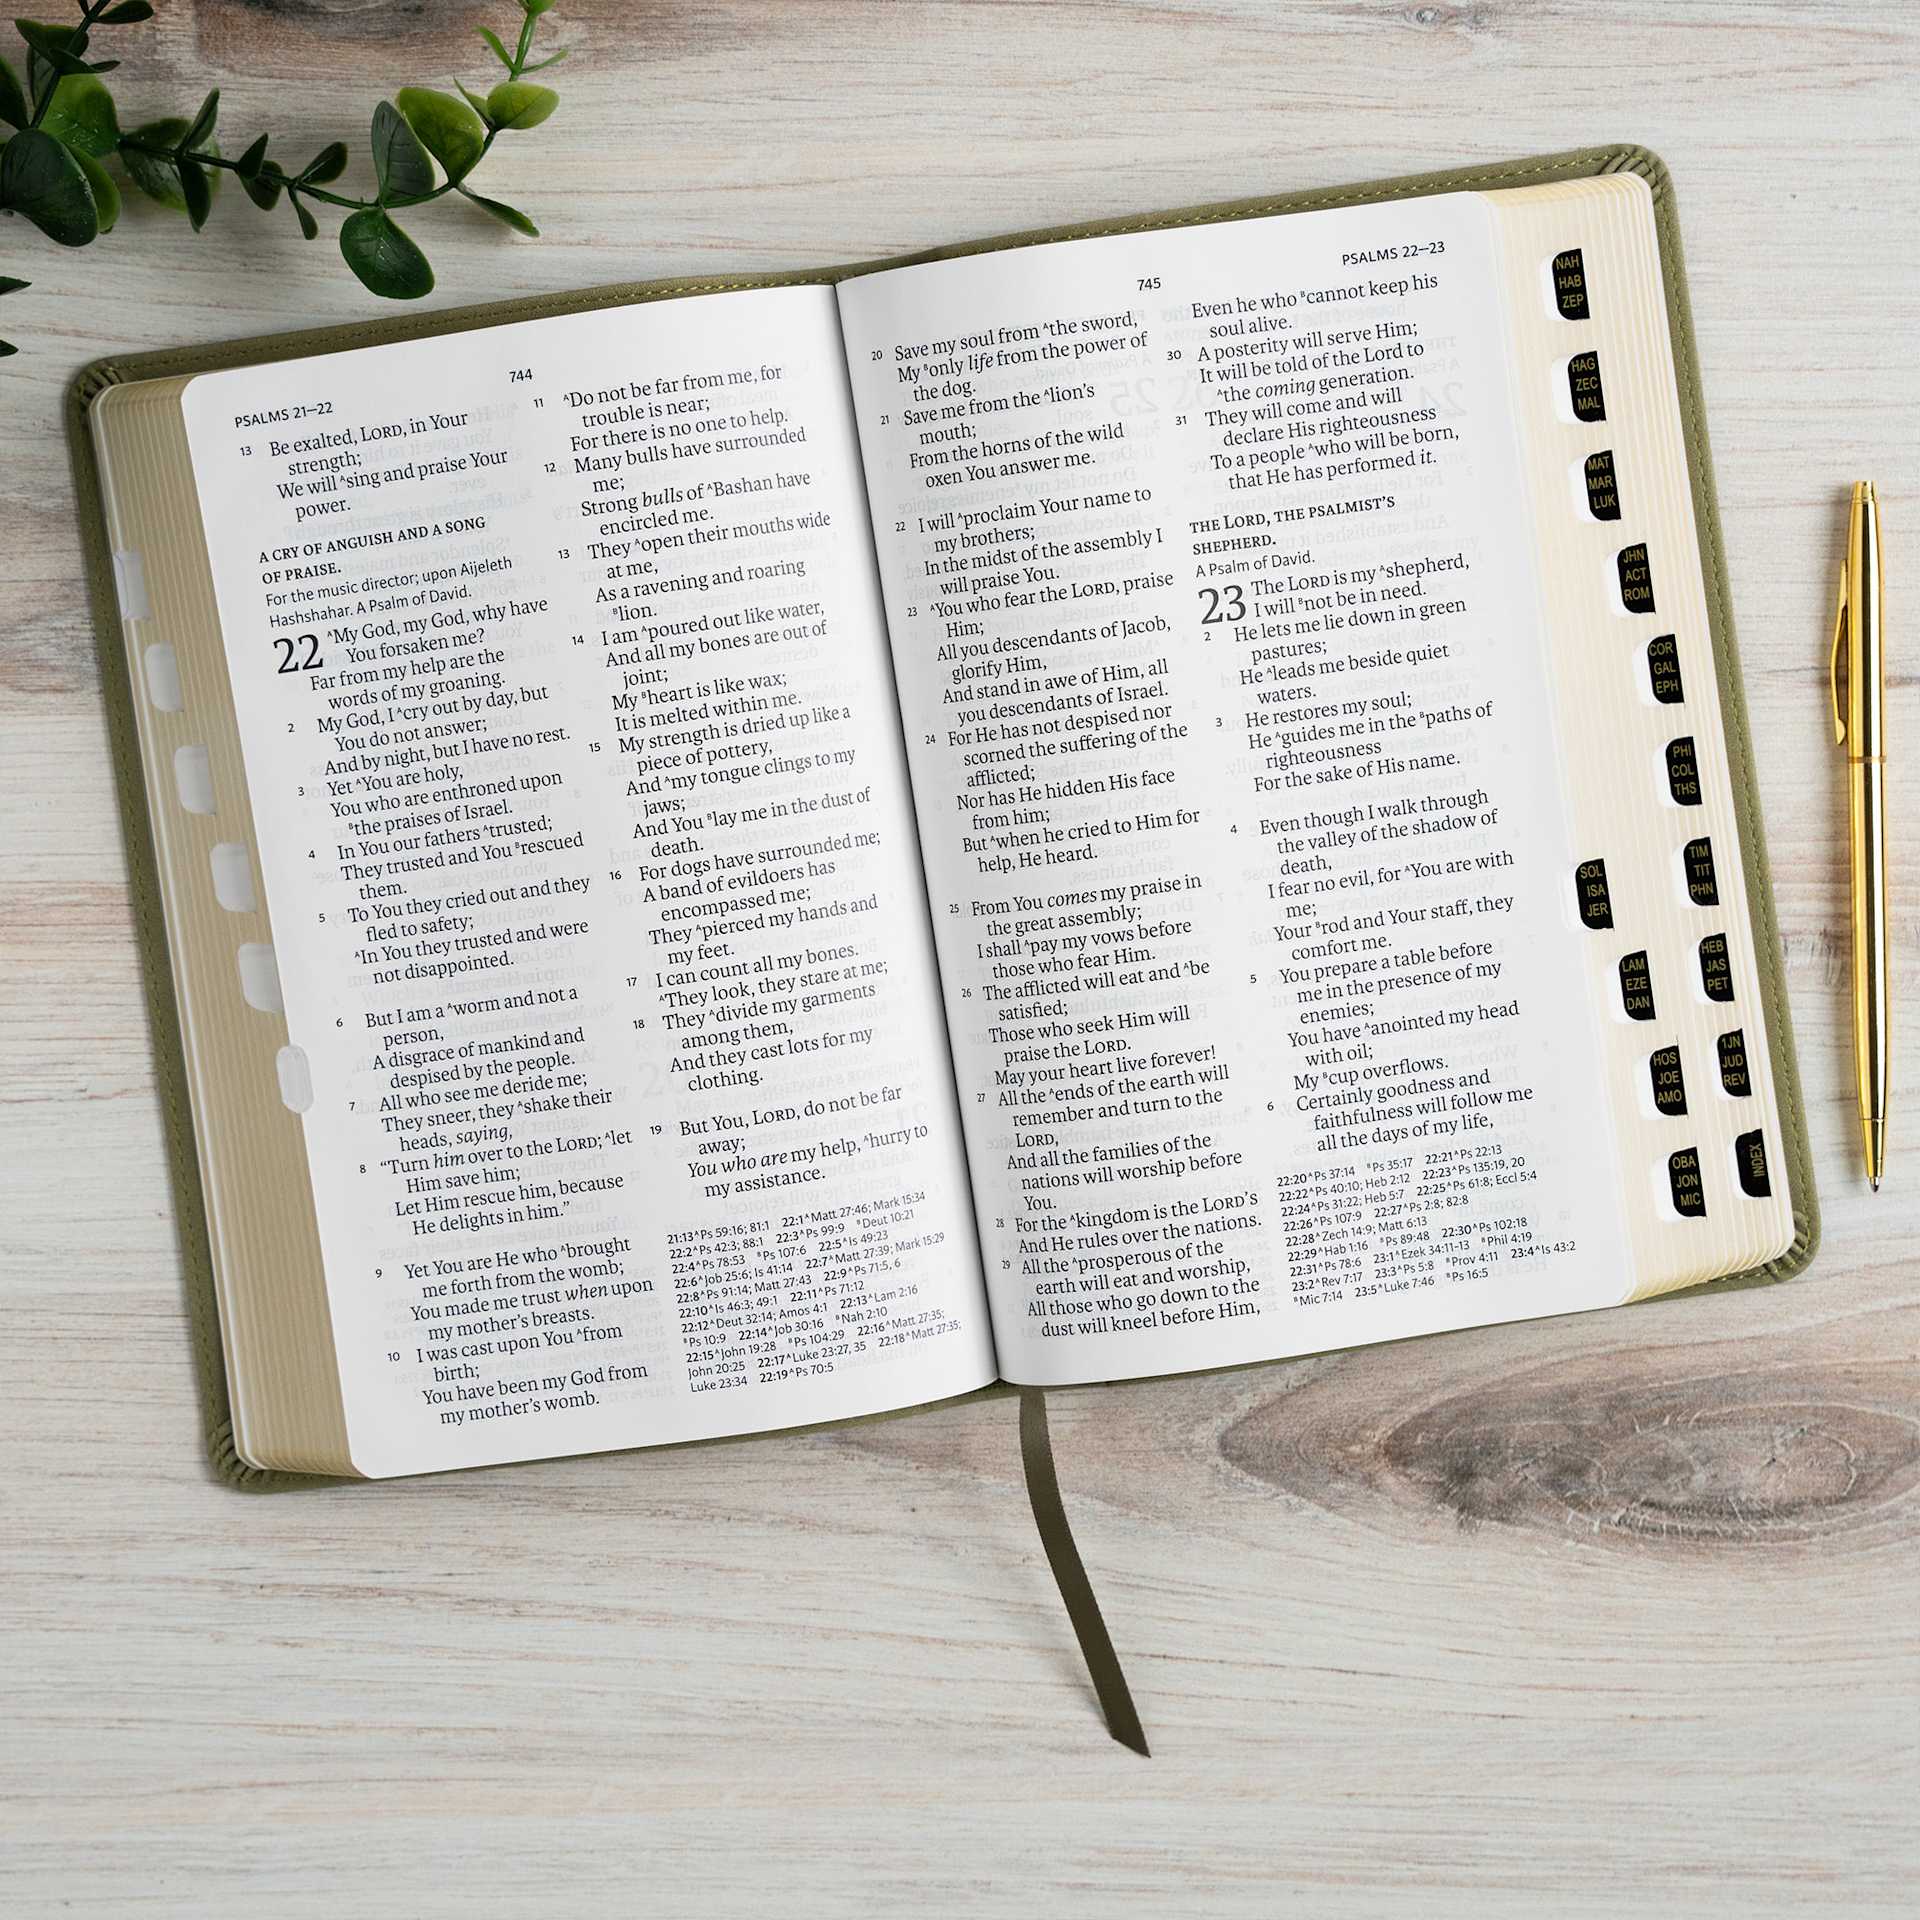 744
PSALMS 21—22
13 Be exalted, LORD, in Your
strength;
We will ᴬsing and praise Your
power.
A CRY OF ANGUISH AND A SONG
OF PRAISE.
For the music director; upon Aijeleth
Hashshahar. A Psalm of David.
22 ᴬMy God, my God, why have
You forsaken me?
Far from my help are the
words of my groaning.
2 My God, I ᴬcry out by day, but
You do not answer;
And by night, but I have no rest.
3 Yet ᴬYou are holy,
You who are enthroned upon
ᴮthe praises of Israel.
4 In You our fathers ᴬtrusted;
They trusted and You ᴮrescued
them.
5 To You they cried out and they
fled to safety;
ᴬIn You they trusted and were
not disappointed.
6 But I am a ᴬworm and not a
person,
A disgrace of mankind and
despised by the people.
7 All who see me deride me;
They sneer, they ᴬshake their
heads, saying,
8 “Turn him over to the LORD; ᴬlet
Him save him;
Let Him rescue him, because
He delights in him.”
9 Yet You are He who ᴬbrought
me forth from the womb;
You made me trust when upon
my mother’s breasts.
10 I was cast upon You ᴬfrom
birth;
You have been my God from
my mother’s womb.
11 ᴬDo not be far from me, for
trouble is near;
For there is no one to help.
12 Many bulls have surrounded
me;
Strong bulls of ᴬBashan have
encircled me.
13 They ᴬopen their mouths wide
at me,
As a ravening and roaring
ᴮlion.
14 I am ᴬpoured out like water,
And all my bones are out of
joint;
My ᴮheart is like wax;
It is melted within me.
15 My strength is dried up like a
piece of pottery,
And ᴬmy tongue clings to my
jaws;
And You ᴮlay me in the dust of
death.
16 For dogs have surrounded me;
A band of evildoers has
encompassed me;
They ᴬpierced my hands and
my feet.
17 I can count all my bones.
ᴬThey look, they stare at me;
18 They ᴬdivide my garments
among them,
And they cast lots for my
clothing.
19 But You, LORD, do not be far
away;
You who are my help, ᴬhurry to
my assistance.
21:13 ᴬPs 59:16; 81:1 22:1 ᴬMatt 27:46; Mark 15:34
22:2 ᴬPs 42:3; 88:1 22:3 ᴬPs 99:9 ᴮDeut 10:21
22:4 ᴬPs 78:53 ᴮPs 107:6 22:5 ᴬIs 49:23
22:6 ᴬJob 25:6; Is 41:14 22:7 ᴬMatt 27:39; Mark 15:29
22:8 ᴬPs 91:14; Matt 27:43 22:9 ᴬPs 71:5, 6
22:10 ᴬIs 46:3; 49:1 22:11 ᴬPs 71:12
22:12 ᴬDeut 32:14; Amos 4:1 22:13 ᴬLam 2:16
ᴮPs 10:9 22:14 ᴬJob 30:16 ᴮNah 2:10
22:15 ᴬJohn 19:28 ᴮPs 104:29 22:16 ᴬMatt 27:35;
John 20:25 22:17 ᴬLuke 23:27, 35 22:18 ᴬMatt 27:35;
Luke 23:34 22:19 ᴬPs 70:5
745
PSALMS 22—23
20 Save my soul from ᴬthe sword,
My ᴮonly life from the power of
the dog.
21 Save me from the ᴬlion’s
mouth;
From the horns of the wild
oxen You answer me.
22 I will ᴬproclaim Your name to
my brothers;
In the midst of the assembly I
will praise You.
23 ᴬYou who fear the LORD, praise
Him;
All you descendants of Jacob,
glorify Him,
And stand in awe of Him, all
you descendants of Israel.
24 For He has not despised nor
scorned the suffering of the
afflicted;
Nor has He hidden His face
from him;
But ᴬwhen he cried to Him for
help, He heard.
25 From You comes my praise in
the great assembly;
I shall ᴬpay my vows before
those who fear Him.
26 The afflicted will eat and ᴬbe
satisfied;
Those who seek Him will
praise the LORD.
May your heart live forever!
27 All the ᴬends of the earth will
remember and turn to the
LORD,
And all the families of the
nations will worship before
You.
28 For the ᴬkingdom is the LORD’S
And He rules over the nations.
29 All the ᴬprosperous of the
earth will eat and worship,
All those who go down to the
dust will kneel before Him,
Even he who ᴮcannot keep his
soul alive.
30 A posterity will serve Him;
It will be told of the Lord to
ᴬthe coming generation.
31 They will come and will
declare His righteousness
To a people ᴬwho will be born,
that He has performed it.
THE LORD, THE PSALMIST’S
SHEPHERD.
A Psalm of David.
23 The LORD is my ᴬshepherd,
I will ᴮnot be in need.
2 He lets me lie down in green
pastures;
He ᴬleads me beside quiet
waters.
3 He restores my soul;
He ᴬguides me in the ᴮpaths of
righteousness
For the sake of His name.
4 Even though I walk through
the valley of the shadow of
death,
I fear no evil, for ᴬYou are with
me;
Your ᴮrod and Your staff, they
comfort me.
5 You prepare a table before
me in the presence of my
enemies;
You have ᴬanointed my head
with oil;
My ᴮcup overflows.
6 Certainly goodness and
faithfulness will follow me
all the days of my life,
22:20 ᴬPs 37:14 ᴮPs 35:17 22:21 ᴬPs 22:13
22:22 ᴬPs 40:10; Heb 2:12 22:23 ᴬPs 135:19, 20
22:24 ᴬPs 31:22; Heb 5:7 22:25 ᴬPs 61:8; Eccl 5:4
22:26 ᴬPs 107:9 22:27 ᴬPs 2:8; 82:8
22:28 ᴬZech 14:9; Matt 6:13
22:29 ᴬHab 1:16 ᴮPs 89:48 22:30 ᴬPs 102:18
22:31 ᴬPs 78:6 23:1 ᴬEzek 34:11-13 ᴮPhil 4:19
23:2 ᴬRev 7:17 23:3 ᴬPs 5:8 ᴮProv 4:11 23:4 ᴬIs 43:2
ᴮMic 7:14 23:5 ᴬLuke 7:46 ᴮPs 16:5
NAH
HAB
ZEP
HAG
ZEC
MAL
MAT
MAR
LUK
JHN
ACT
ROM
COR
GAL
EPH
PHI
COL
THS
TIM
TIT
PHN
HEB
JAS
PET
1JN
JUD
REV
INDEX
SOL
ISA
JER
LAM
EZE
DAN
HOS
JOE
AMO
OBA
JON
MIC